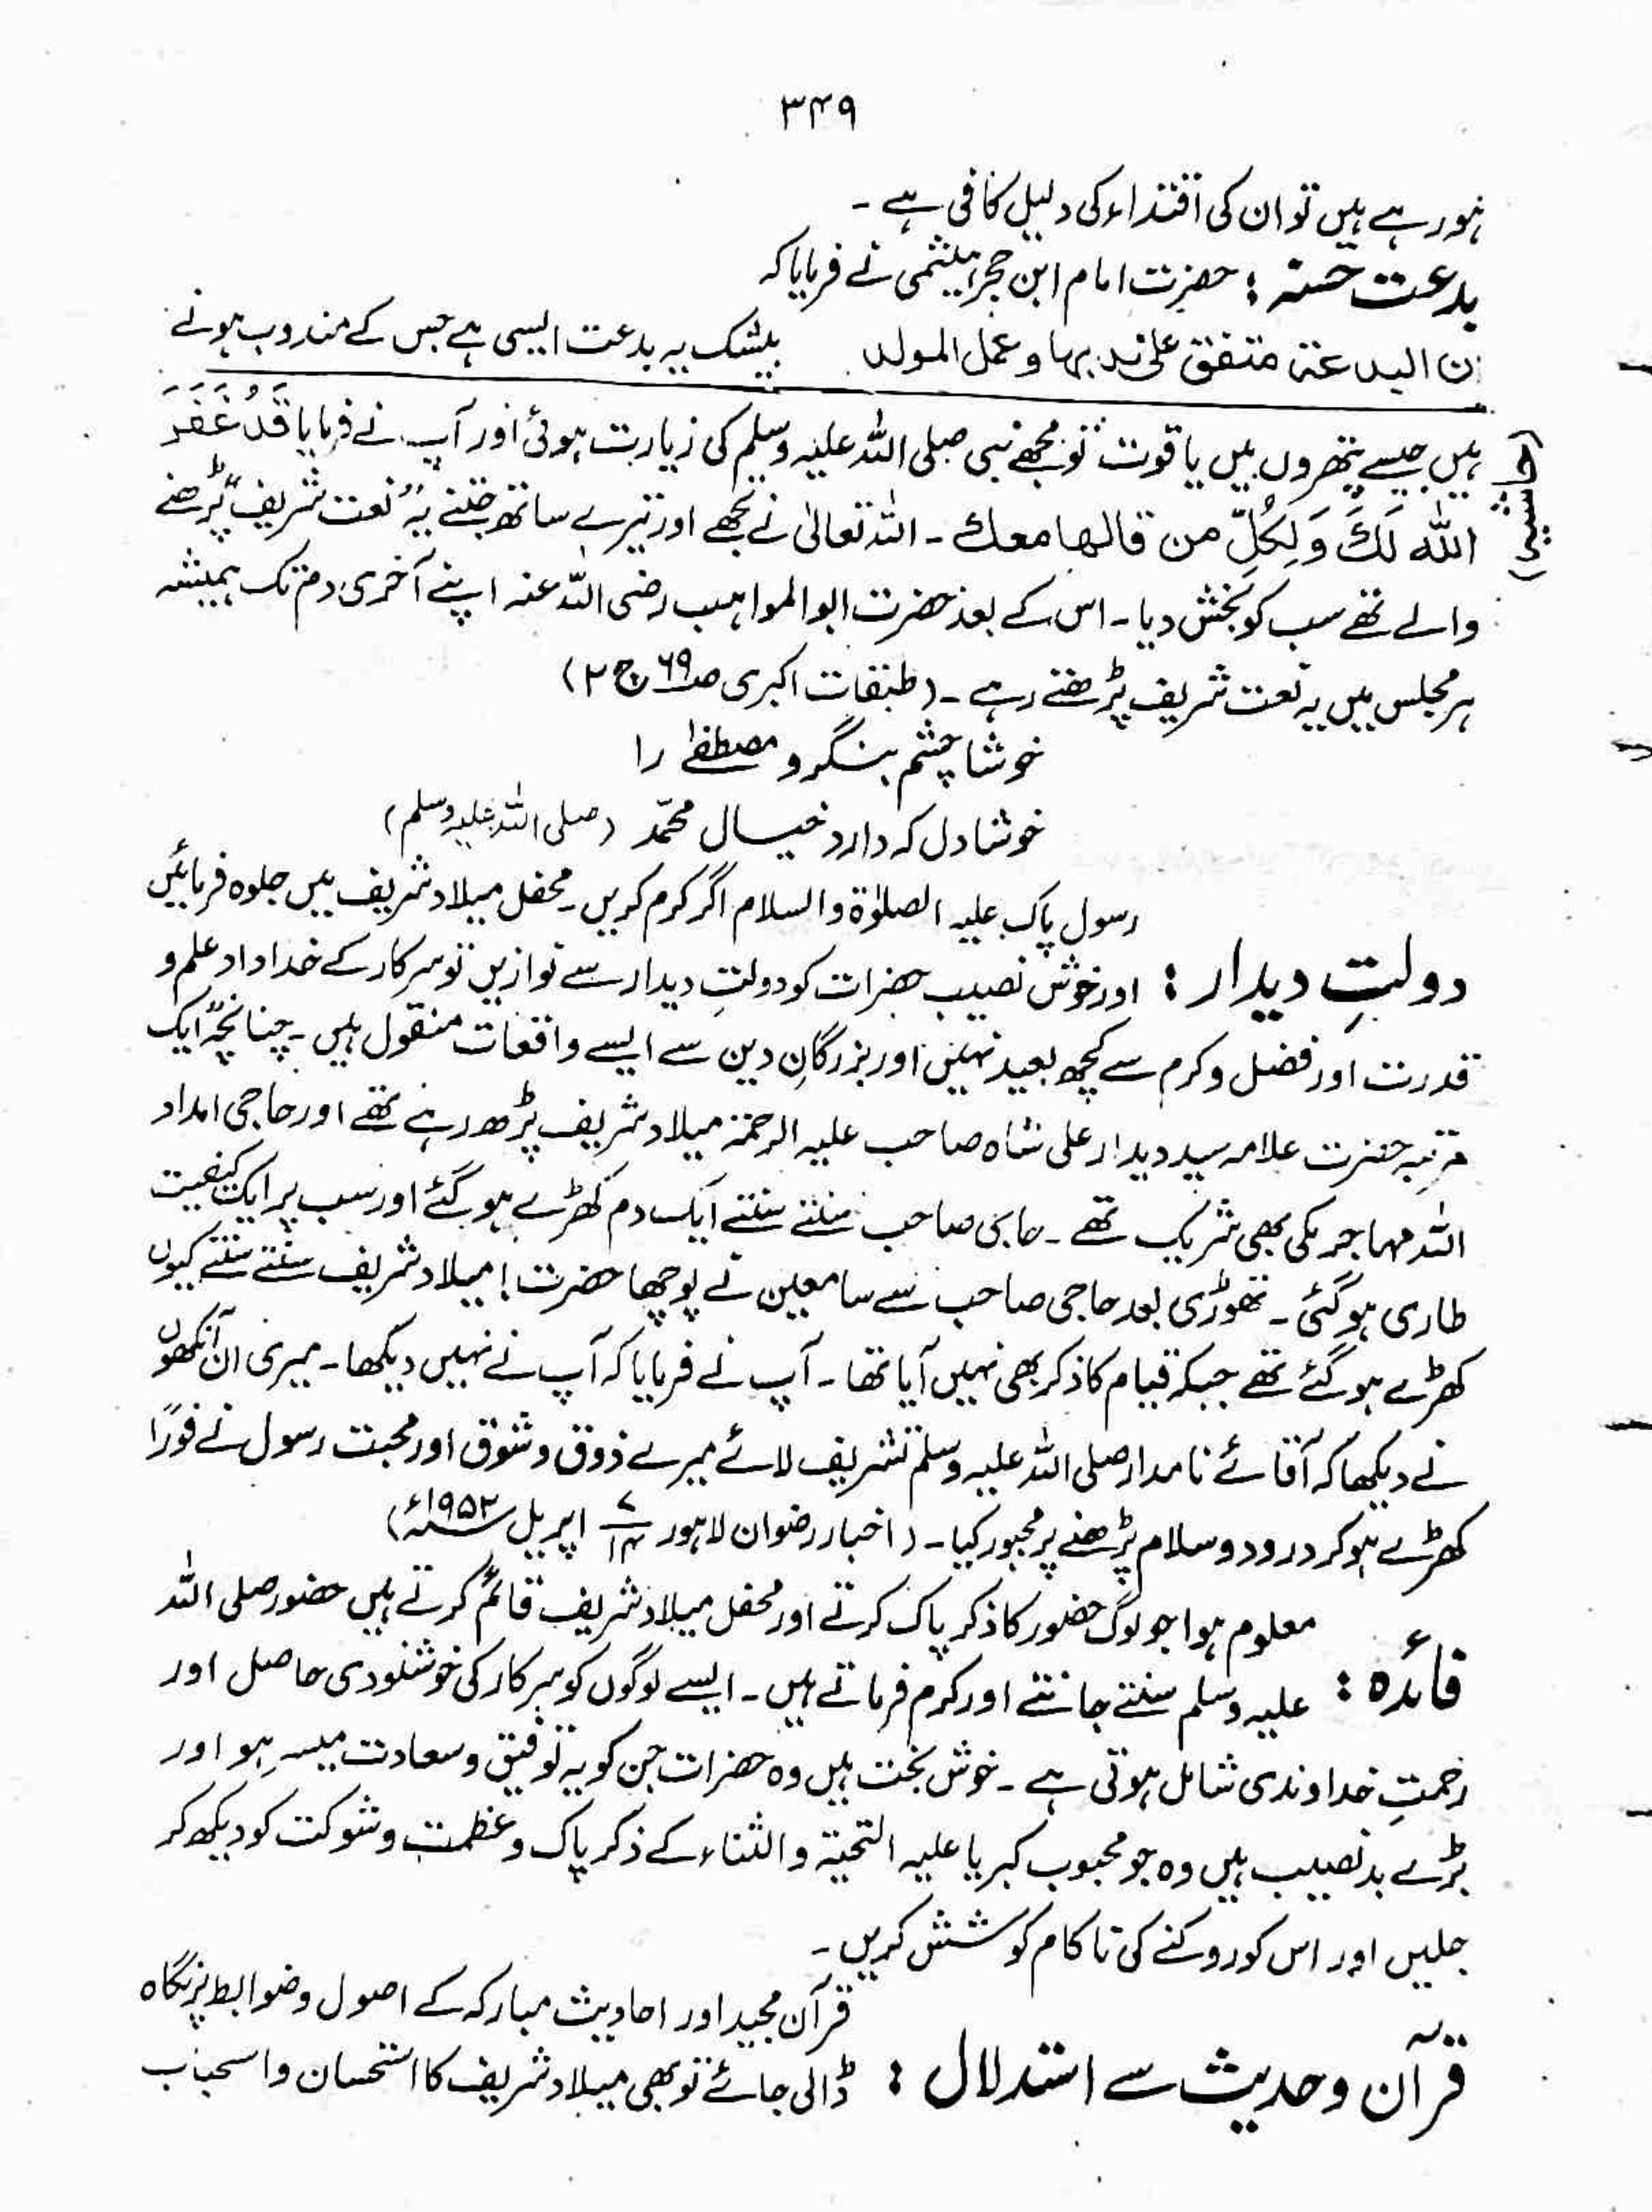 ۳۴۹
ہو رہے ہیں تو ان کی اقتداء کی دلیل کافی ہے۔
بدعت حسنہ : حضرت امام ابن حجر ہیثمی نے فرمایا کہ
ن البدعتہ متفق علیٰ ندبہا و عمل المولد بیشک یہ بدعت ایسی ہے جس کے مندوب ہونے
(حاشیہ)
ہیں جیسے پتھروں میں یاقوت" تو مجھے نبی صلی اللہ علیہ وسلم کی زیارت ہوئی اور آپ نے فرمایا قَدْ غَفَرَ
اللّٰہ لَکَ وَلِکُلِّ من قالہا معك ۔ اللہ تعالیٰ نے تجھے اور تیرے ساتھ جتنے یہ "نعت شریف" پڑھنے
والے تھے سب کو بخش دیا۔ اس کے بعد حضرت ابو المواہب رضی اللہ عنہ اپنے آخری دم تک ہمیشہ
ہر مجلس میں یہ نعت شریف پڑھتے رہے۔ (طبقات اکبری صـ۶۹ ج ۲)
خوشا چشم بنگرو مصطفےٰ را
خوشا دل کہ دارد خیال محمّد (صلی اللہ علیہ وسلم)
رسول پاک علیہ الصلوٰۃ والسلام اگر کرم کریں۔ محفل میلاد شریف میں جلوہ فرمائیں
دولتِ دیدار : اور خوش نصیب حضرات کو دولتِ دیدار سے نوازیں تو سرکار کے خداداد علم و
قدرت اور فضل و کرم سے کچھ بعید نہیں اور بزرگانِ دین سے ایسے واقعات منقول ہیں۔ چنانچہ ایک
مرتبہ حضرت علامہ سید دیدار علی شاہ صاحب علیہ الرحمۃ میلاد شریف پڑھ رہے تھے اور حاجی امداد
اللہ مہاجر مکی بھی شریک تھے۔ حاجی صاحب سنتے سنتے ایک دم کھڑے ہو گئے اور سب پر ایک کیفیت
طاری ہو گئی۔ تھوڑی بعد حاجی صاحب سے سامعین نے پوچھا حضرت! میلاد شریف سنتے سنتے کیوں
کھڑے ہو گئے تھے جبکہ قیام کا ذکر بھی نہیں آیا تھا۔ آپ نے فرمایا کہ آپ نے نہیں دیکھا۔ میری ان آنکھوں
نے دیکھا کہ آقائے نامدار صلی اللہ علیہ وسلم تشریف لائے میرے ذوق و شوق اور محبت رسول نے فورًا
کھڑے ہو کر درود و سلام پڑھنے پر مجبور کیا۔ (اخبار رضوان لاہور ۷/۱۴ اپریل ۱۹۵۲ء)
معلوم ہوا جو لوگ حضور کا ذکر پاک کرتے اور محفل میلاد شریف قائم کرتے ہیں حضور صلی اللہ
فائدہ : علیہ وسلم سنتے جانتے اور کرم فرماتے ہیں۔ ایسے لوگوں کو سرکار کی خوشنودی حاصل اور
رحمتِ خداوندی شامل ہوتی ہے۔ خوش بخت ہیں وہ حضرات جن کو یہ توفیق و سعادت میسر ہو اور
بڑے بدنصیب ہیں وہ جو محبوب کبریا علیہ التحیۃ والثناء کے ذکر پاک و عظمت و شوکت کو دیکھ کر
جلیں اور اس کو روکنے کی ناکام کوشش کریں۔
قرآن مجید اور احادیث مبارکہ کے اصول و ضوابط پر نگاہ
قرآن و حدیث سے استدلال : ڈالی جائے تو بھی میلاد شریف کا استحسان و استحباب